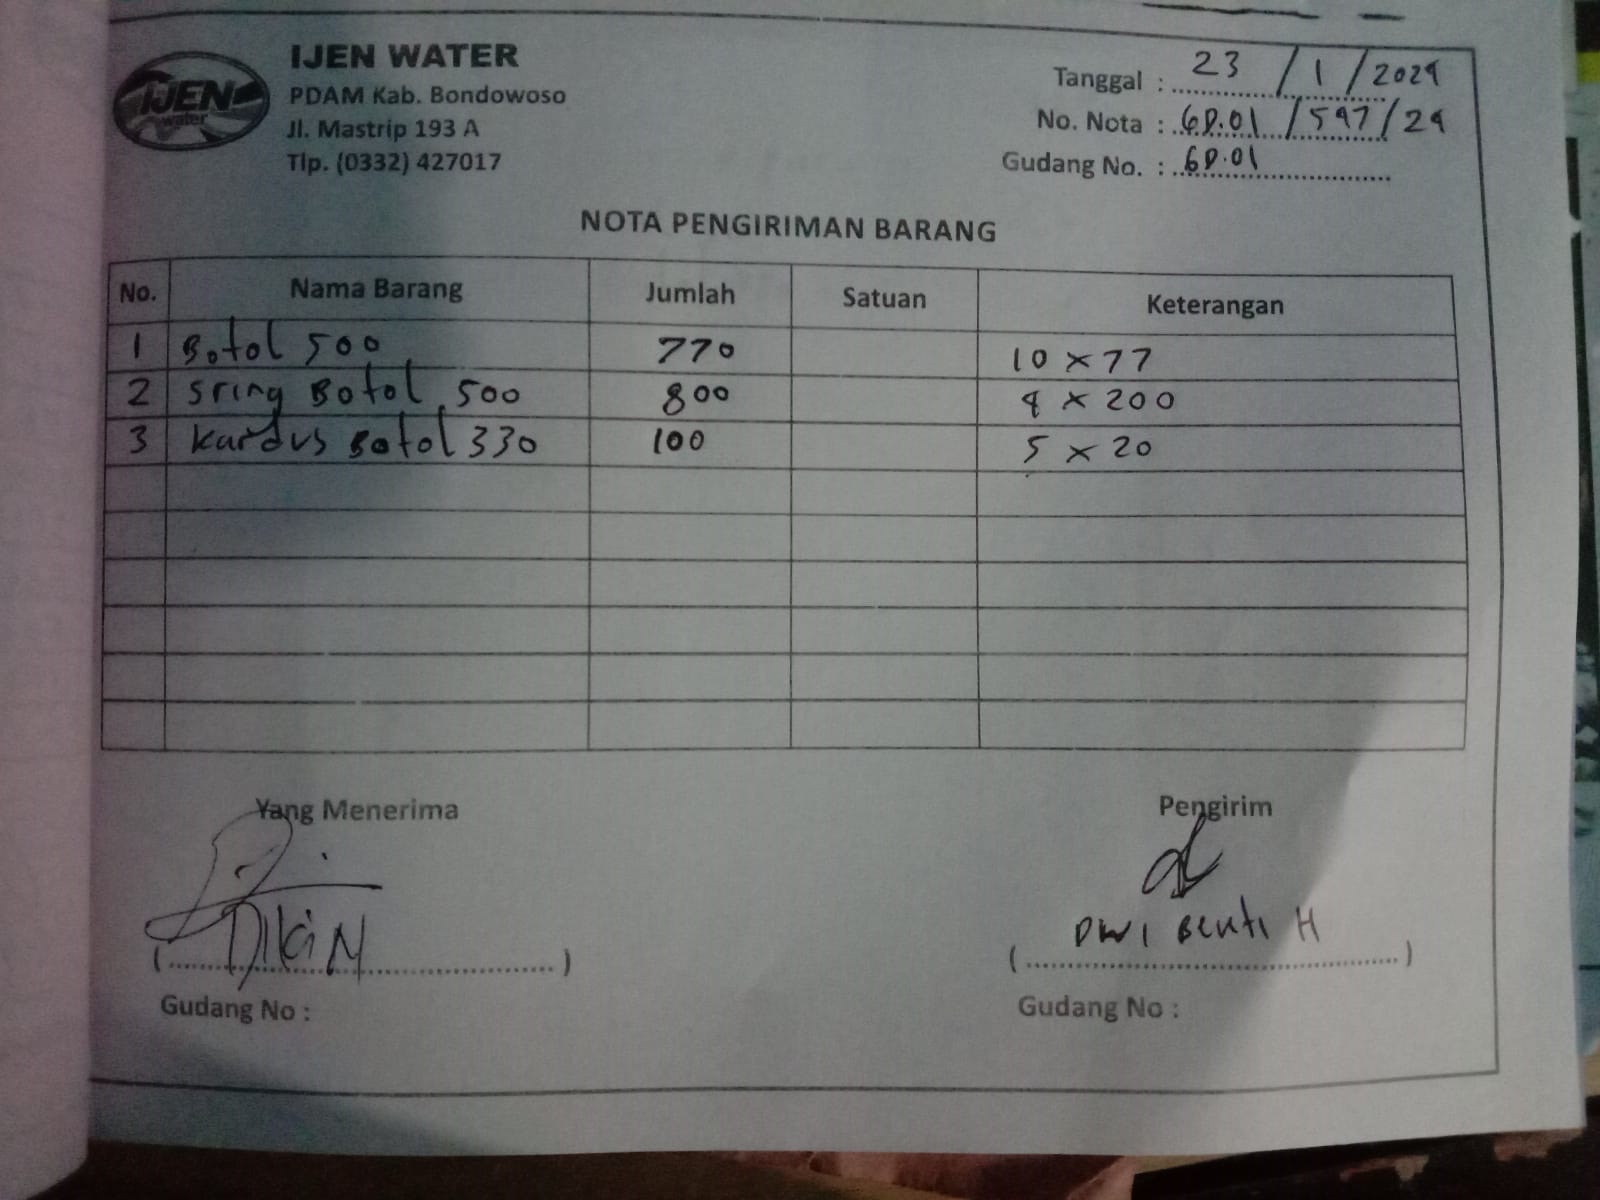 IJEN water
IJEN WATER
PDAM Kab. Bondowoso
Jl. Mastrip 193 A
Tlp. (0332) 427017
Tanggal : 23 / 1 / 2024
No. Nota : 6D.01 / 547 / 24
Gudang No. : 6D.01
NOTA PENGIRIMAN BARANG
No. Nama Barang Jumlah Satuan Keterangan
1 Botol 500 770 10 x 77
2 Sring Botol 500 800 4 x 200
3 Kardus Botol 330 100 5 x 20
Yang Menerima
Pengirim
( DIKIN )
( DWI BEKTI H )
Gudang No :
Gudang No :